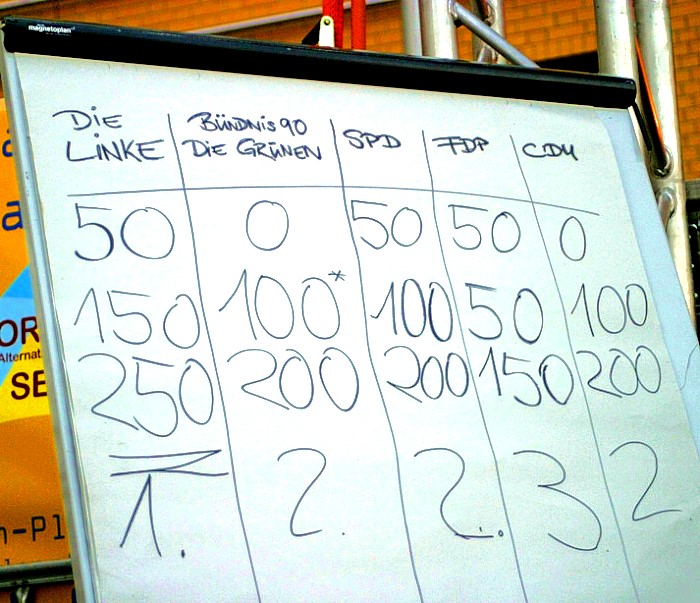 magnetoplan
Die Linke | Bündnis 90 Die Grünen | SPD | FDP | CDU
50 | 0 | 50 | 50 | 0
150 | 100* | 100 | 50 | 100
250 | 200 | 200 | 150 | 200
1. | 2. | 2.. | 3 | 2
OR
Alternat
SE
n-Pl